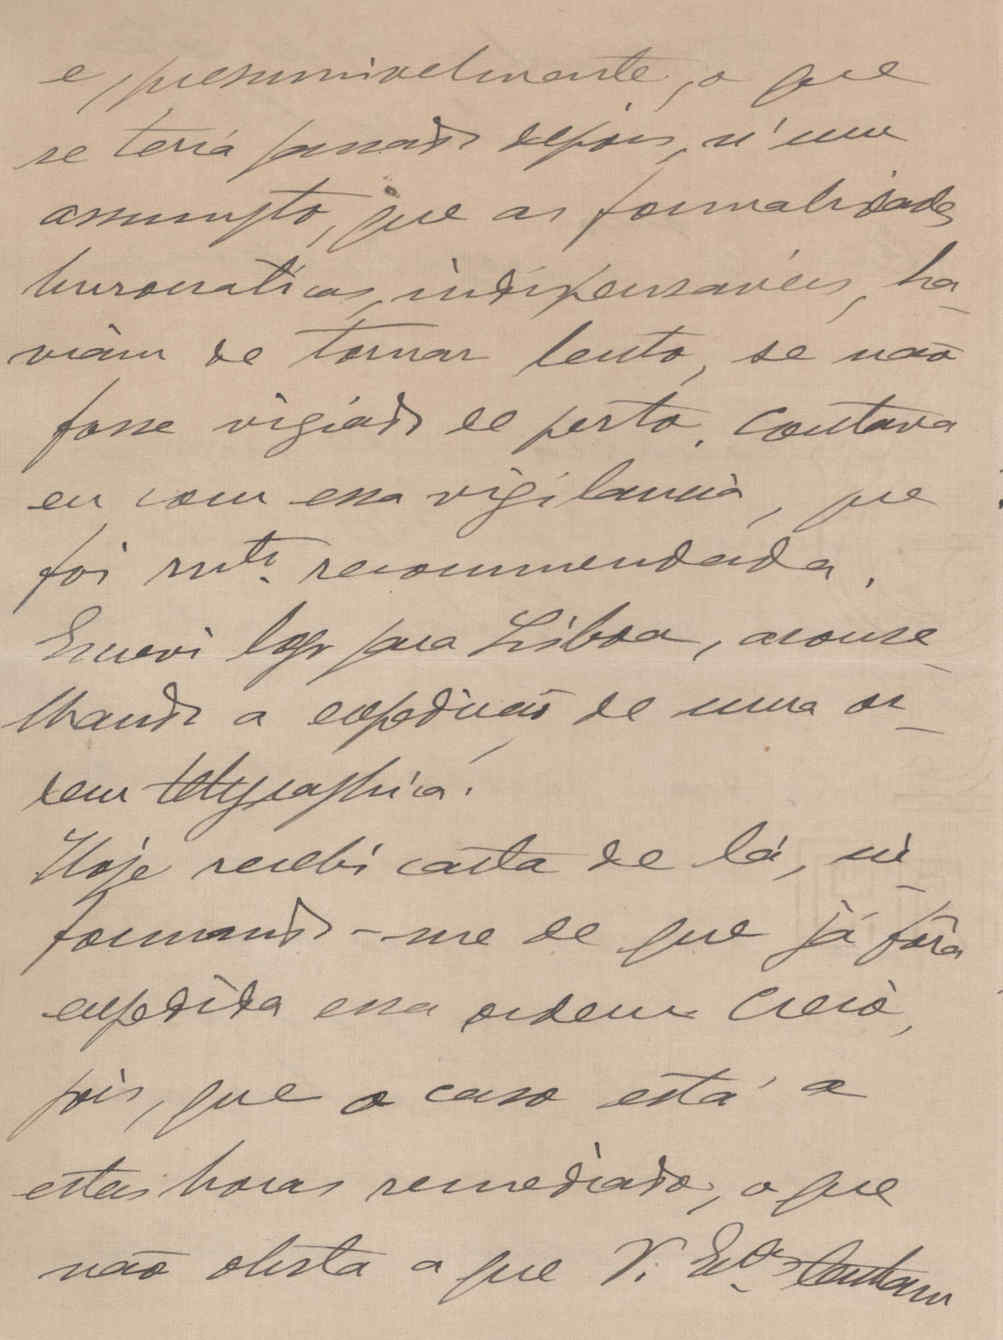 e, presumivelmente, o que
se teria passado depois, n'um
assumpto, que as formalidades
burocraticas, indispensaveis, ha-
viam de tornar lento, se não
fosse vigiado de perto. Contava
eu com essa vigilancia, que
foi mto. recommendada.
Escrevi logo para Lisboa, aconse-
lhando a expedição de uma or-
dem telegraphica.
Hoje recebi carta de lá, in-
formando-me de que já fôra
expedida essa ordem. Creio,
pois, que o caso está a
estas horas remediado, o que
não obsta a que V. Exas.